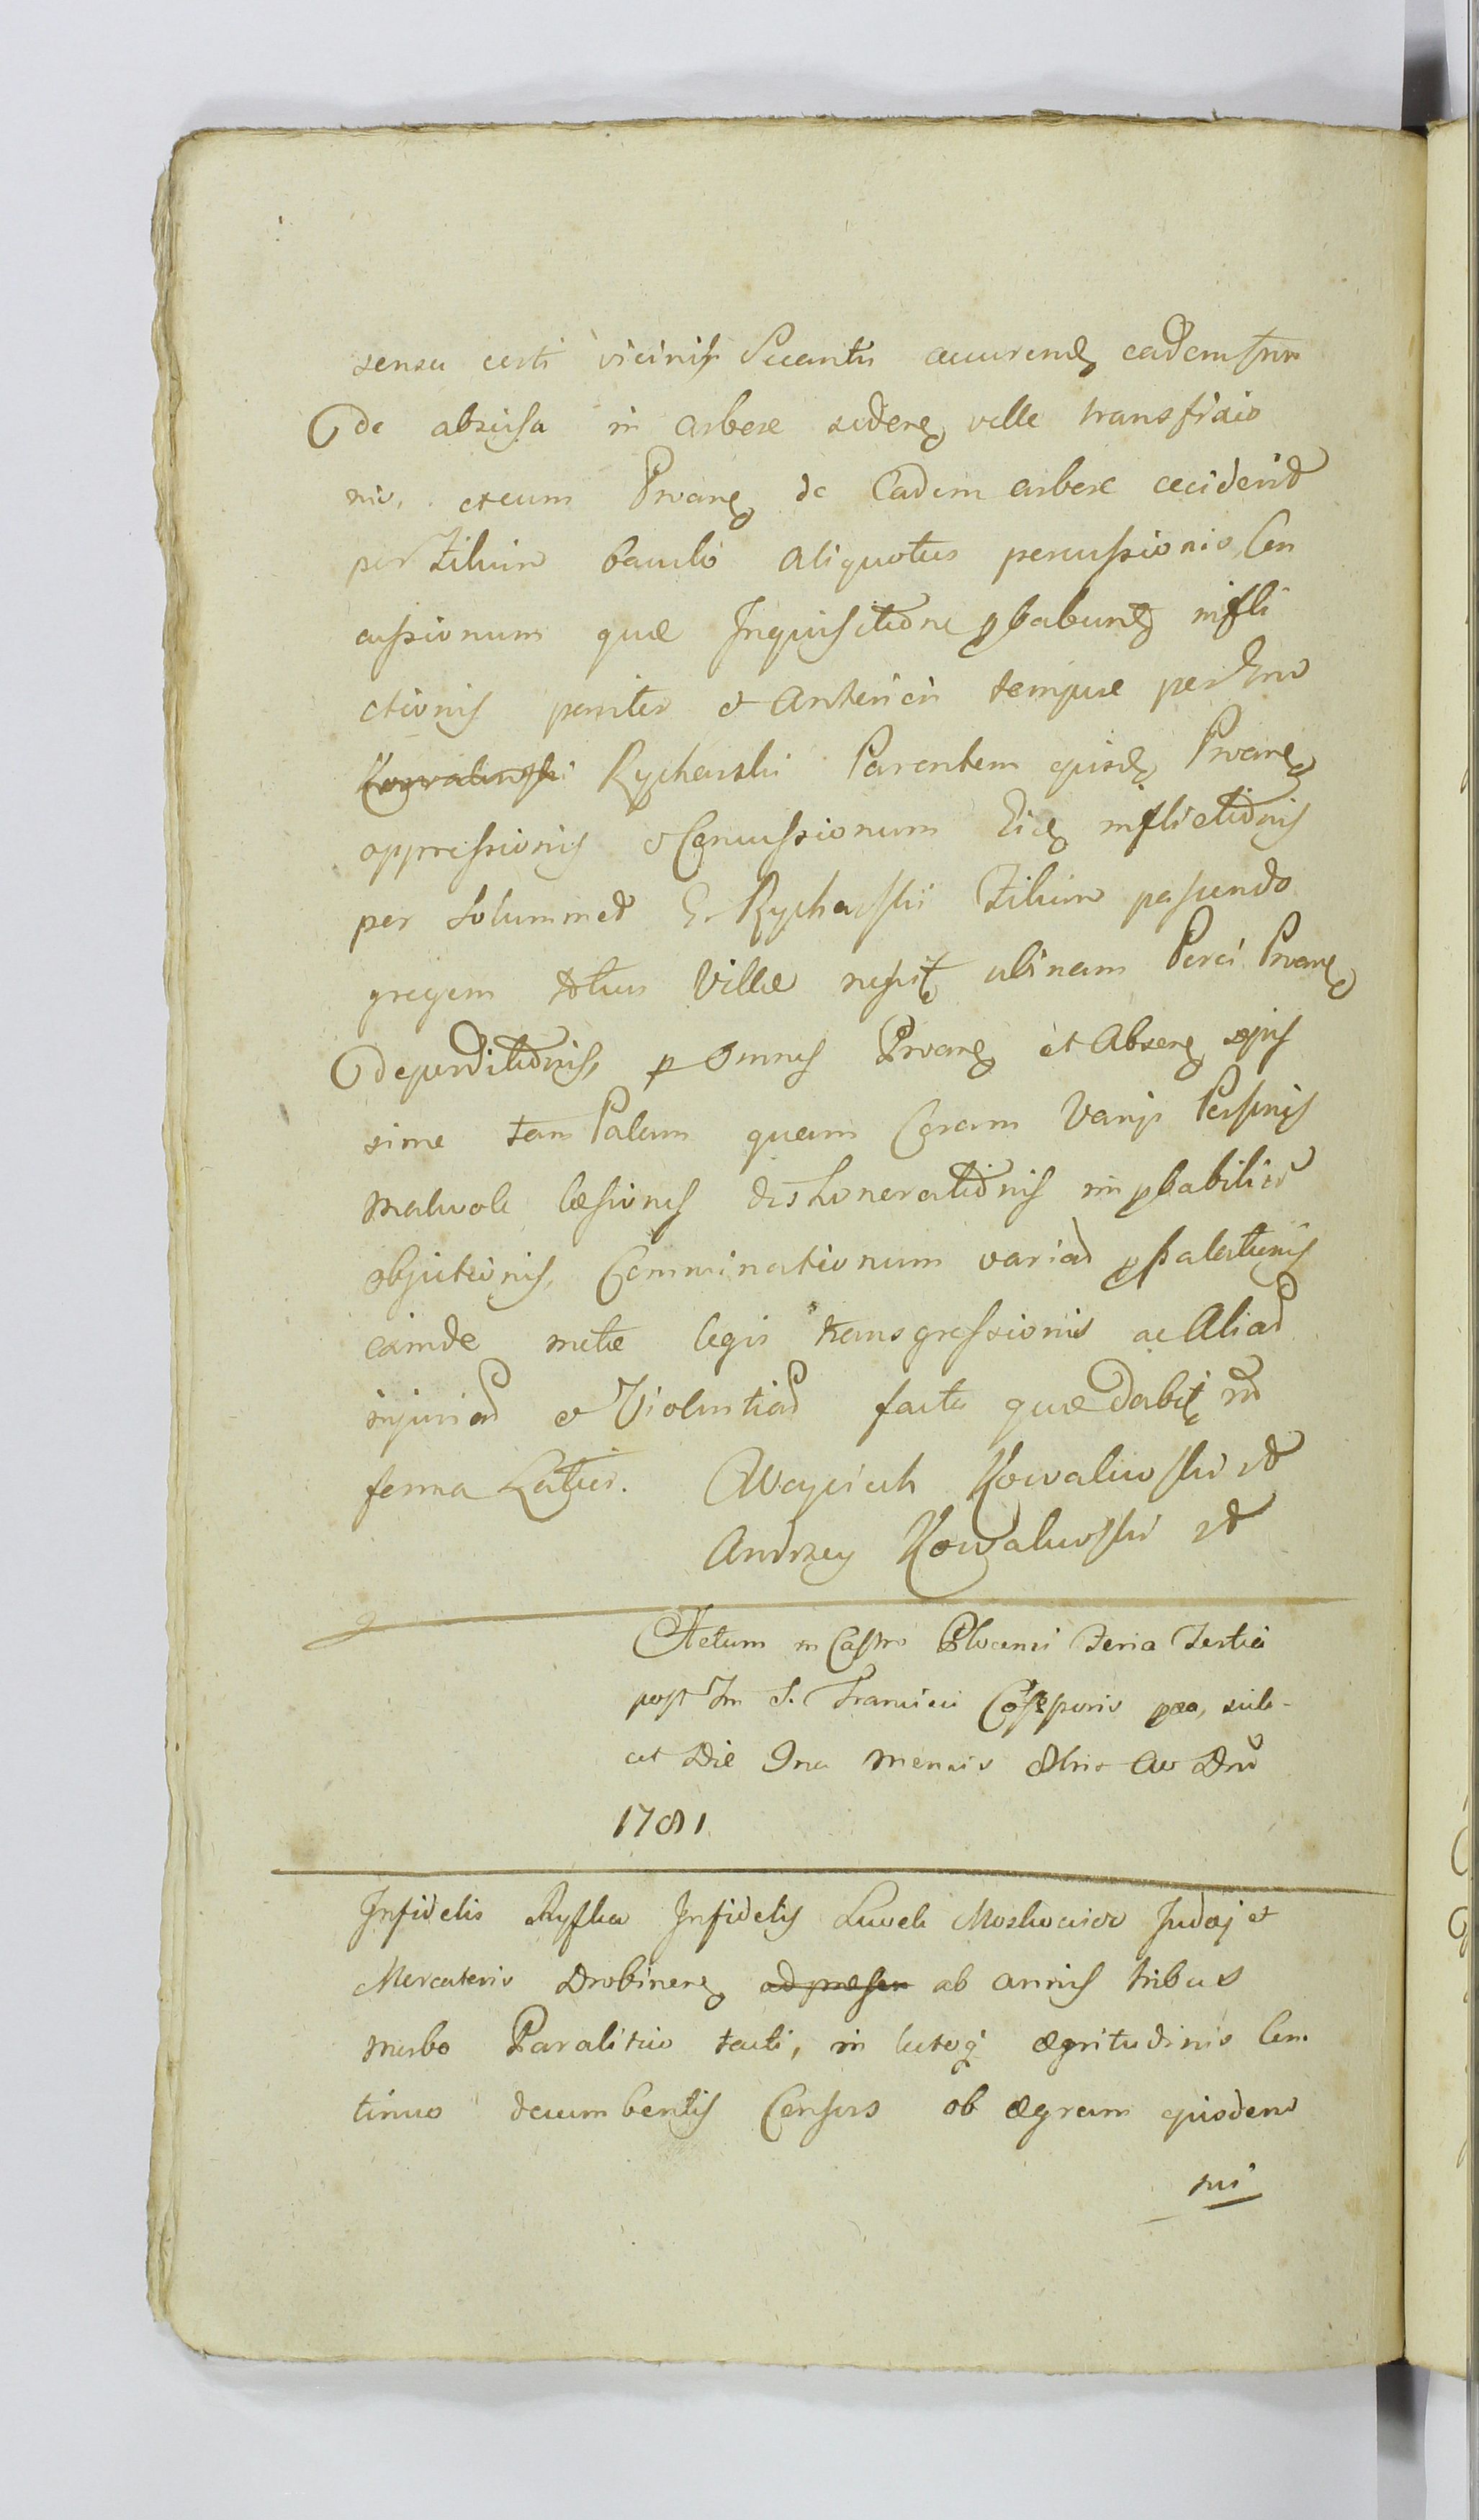 sensu certi vicinis accurend eadem
de abscissa in arbore sedere velle transfixio
nis, et cum Proane de Eadem arbore ceciderit
per Filium baculo aliquotus percussionis, Con
cussionum quæ Inquisitione pbabunt infli
ctionis pariter et Anteriori tempore per
Kowalewski Rycharski Parentem ejusd Proane
oppressionis et Concussionum Eid inflictionis
per solummet G. Rycharski Filium pascendo
gregem totius Villæ ubinam Porci Proane
deperditionis, p omnes Proane et Absene sæpis
sime tam Palam quam Coram Varijs Personis
malevole læsionis dishonerationis improbabilium
objectionis, Comminationum variar ppalationis
eamde metæ legis transgressionis ac Aliar
injuriar et Violentiar facta quæ dabit in
forma Latius. Woyciech Kowalewski
Andrzey Kowalewski
Actum in Castro Plocensi Feria Tertia
post Fm S. Francisci scili-
cet Die 9na mensis 8bris Ao Dni
1781
Infidelis Ryfka Infidelis Lewek Moskowicz Judæj et
Mercatoris Drobinens ad præsen ab annis tribus
morbo Paralitico tacti, in lectoq ægritudinis Con
tinuo decumbentis Consors ob ægram ejusdem
sui